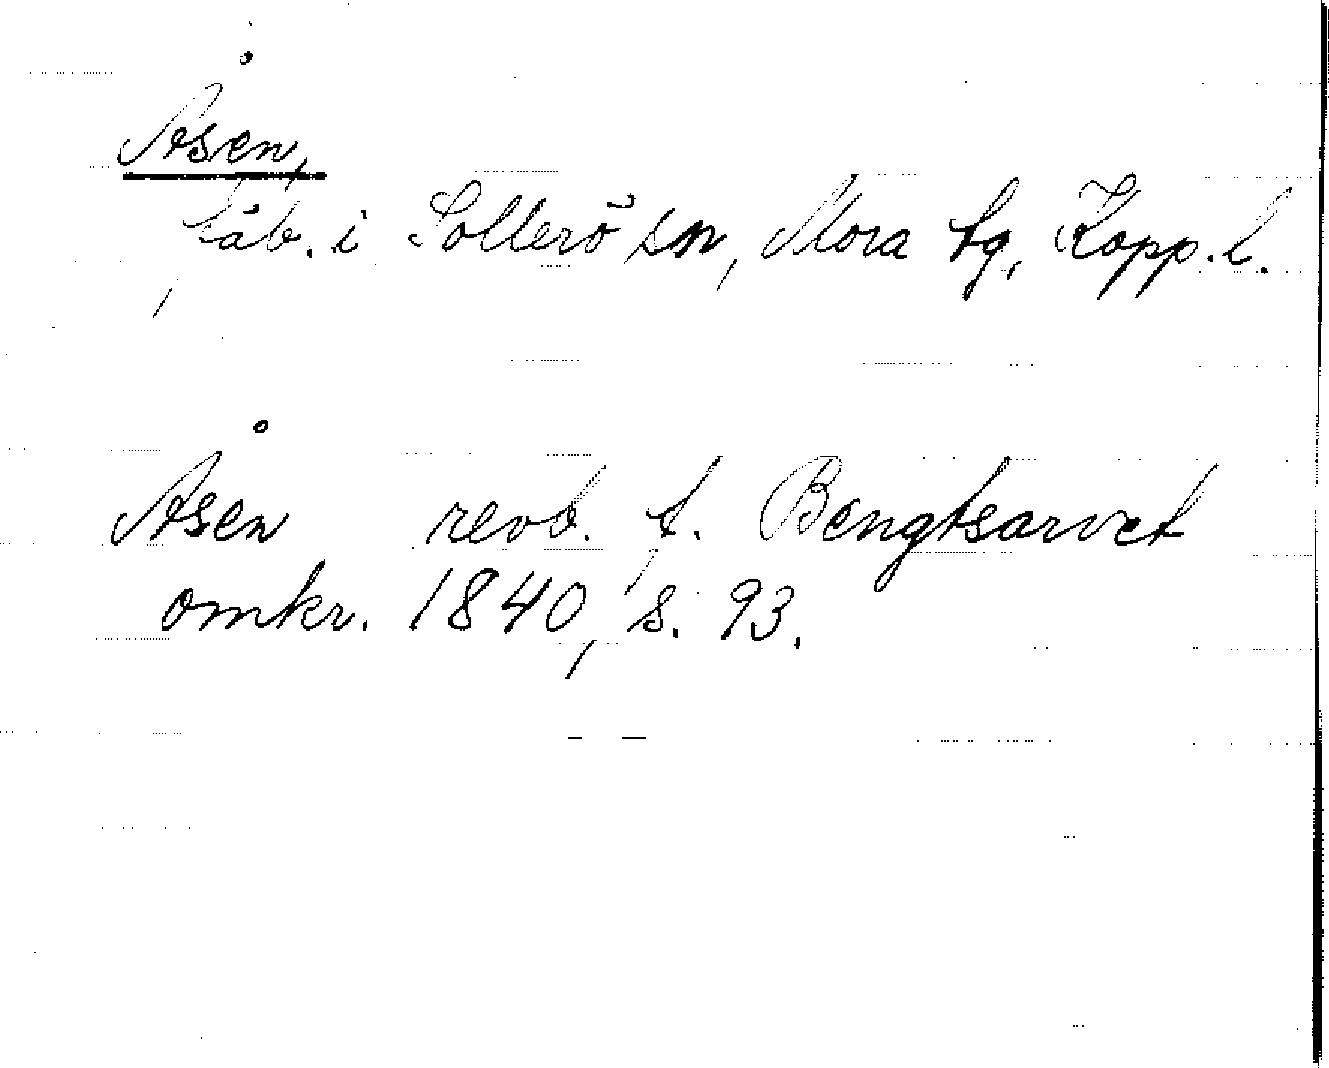 Åsen,
fäb. i Sollerö sn, Mora tg, Kopp. l.
Åsen revb. t. Bengtsarvet
omkr. 1840, s. 93.